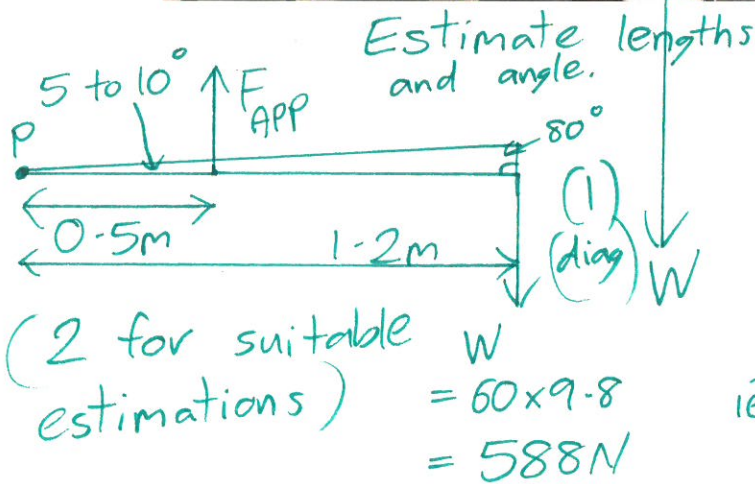 Estimate lengths
and angle.
5 to 10°
F APP
80°
P
0.5m
1.2m
(1)
(diag)
W
(2 for suitable
estimations)
W
= 60x9.8
= 588N
ie